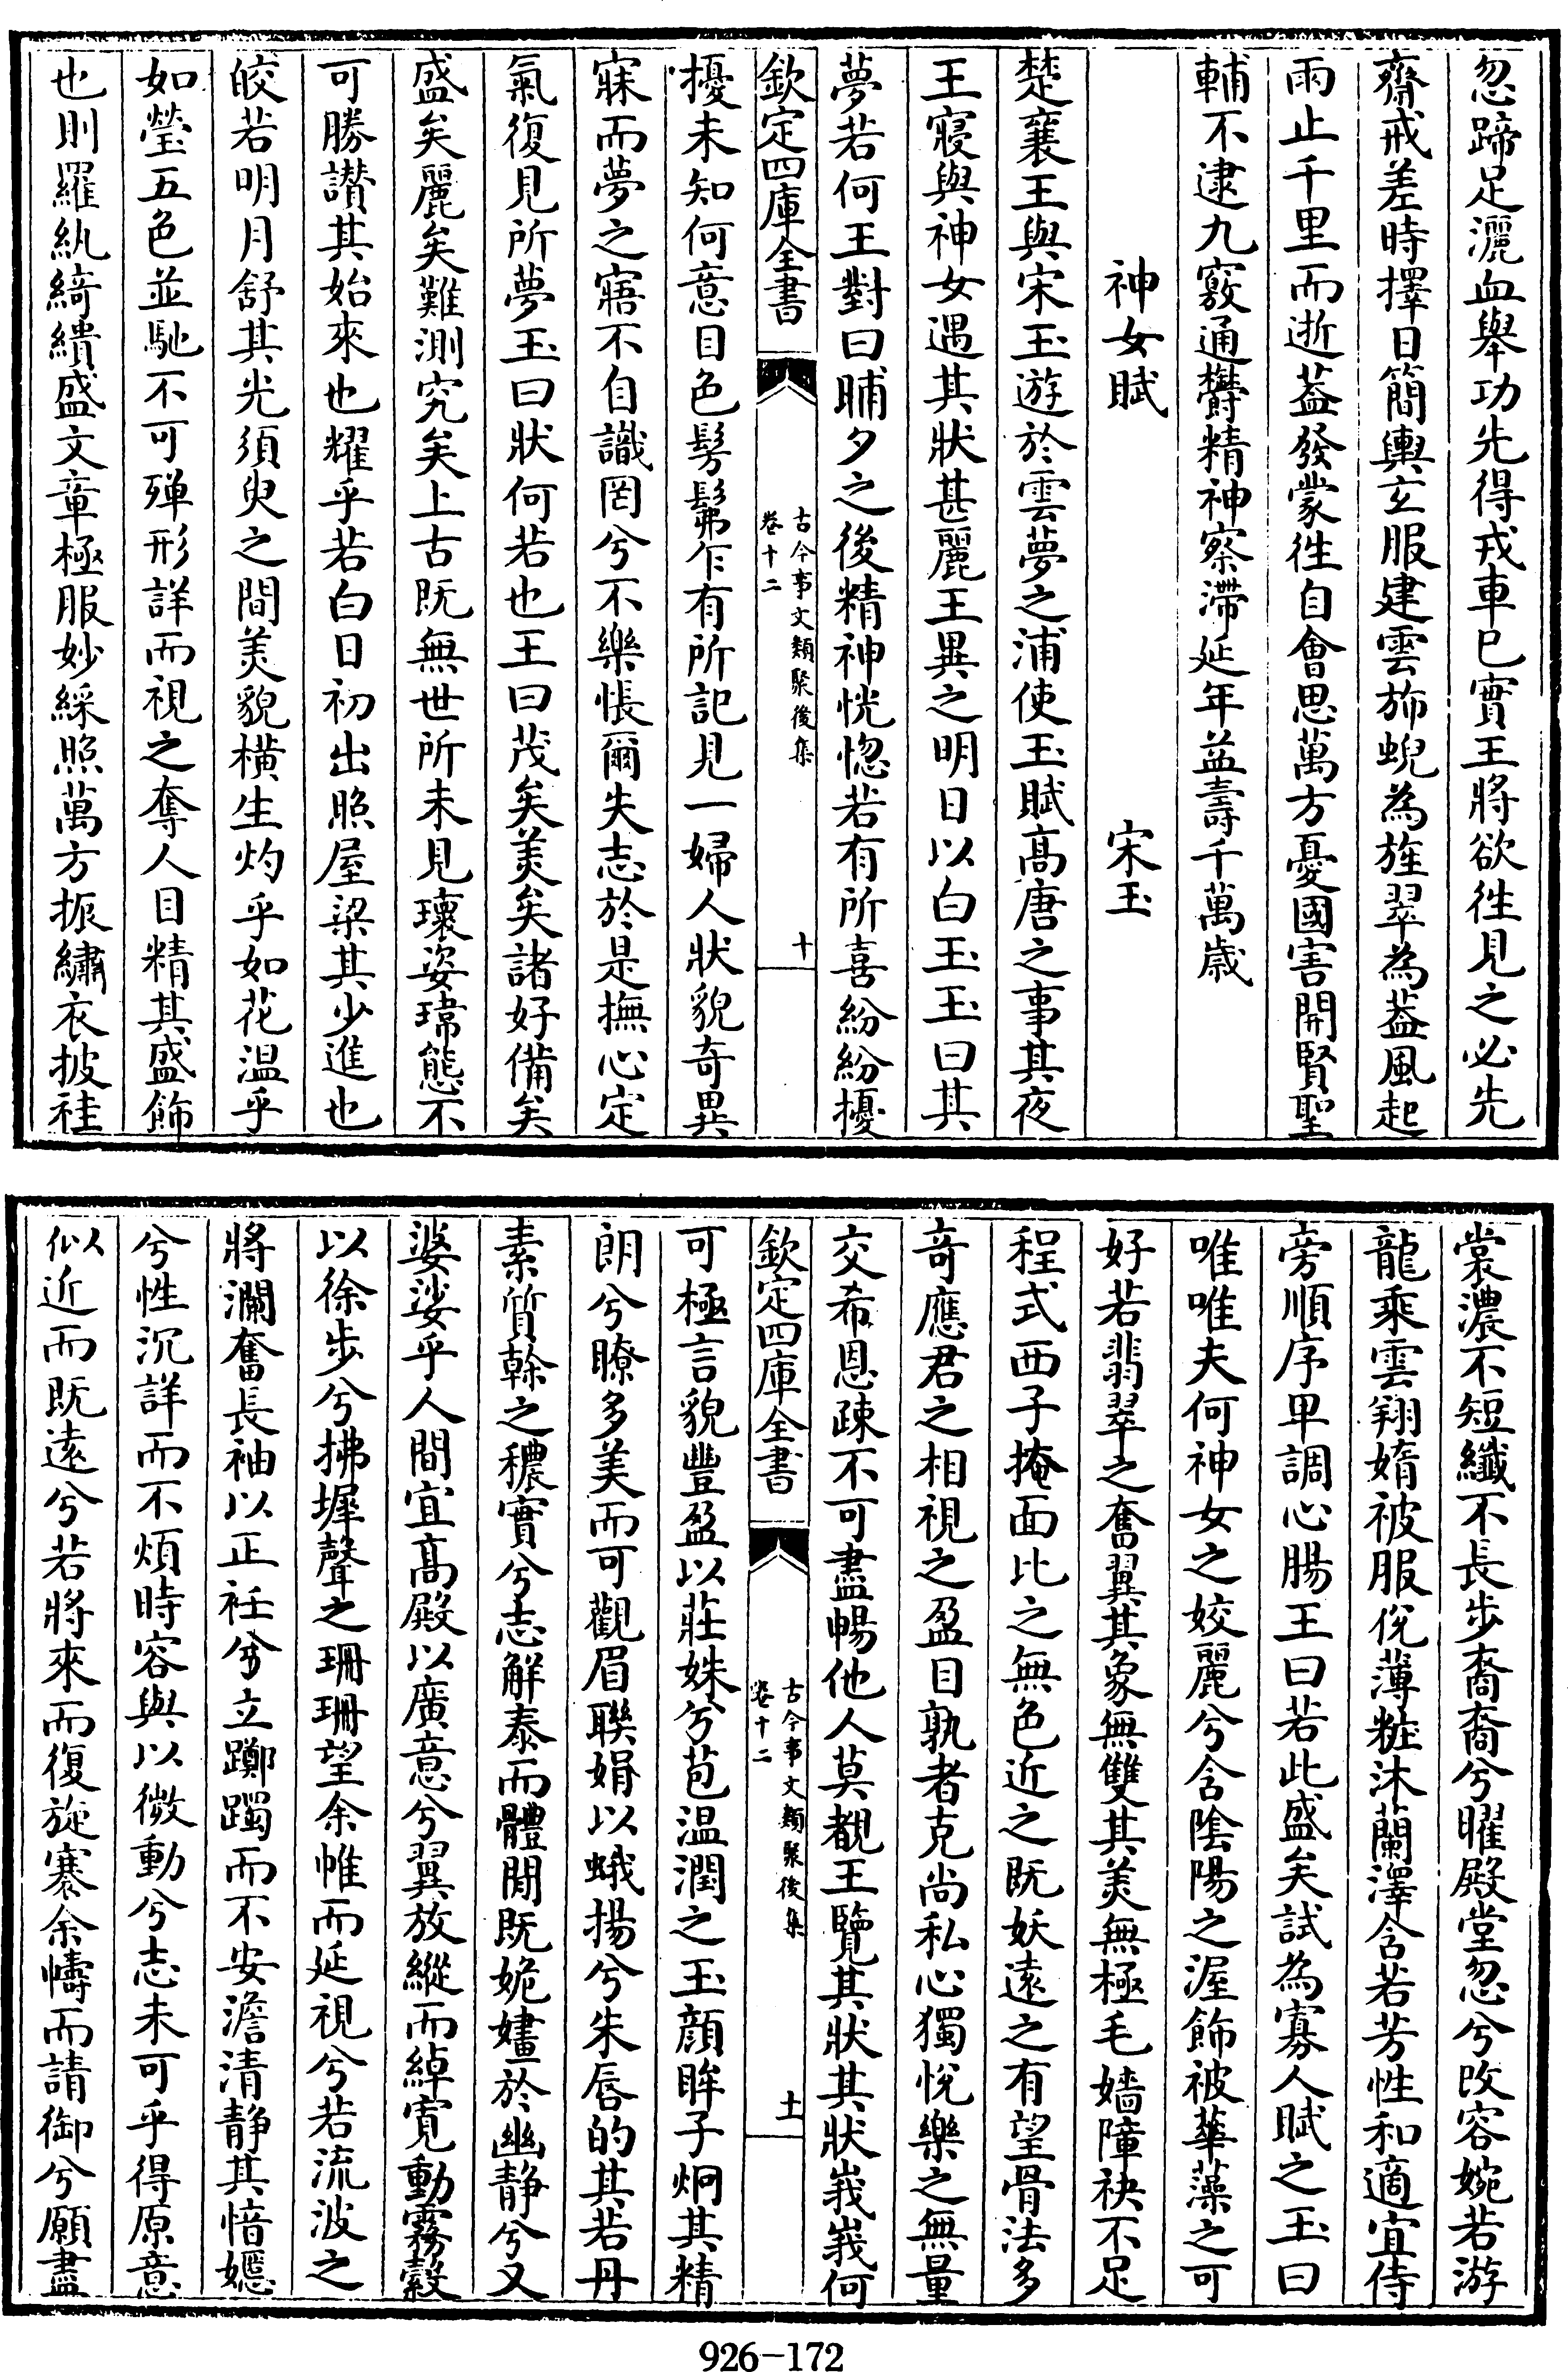 忽蹄足灑血舉功先得戎車已實王將欲往見之必先
齋戒差時擇日簡輿玄服建雲斾蜺為旌翠為蓋風起
雨止千里而逝蓋發蒙往自會思萬方憂國害開賢聖
輔不逮九竅通欝精神察滯延年益壽千萬歳
神女賦 宋玉
楚襄王與宋玉游於雲夢之浦使玉賦髙唐之事其夜
王寢與神女遇其狀甚麗王異之明日以白玉玉曰其
夢若何王對曰晡夕之後精神恍惚若有所喜紛紛擾
欽定四庫全書 古今事文類聚後集 卷十二 十
擾未知何意目色髣髴乍有所記見一婦人狀貌奇異
寐而夢之寤不自識罔兮不樂悵爾失志於是撫心定
氣復見所夢玉曰狀何若也王曰茂矣美矣諸好備矣
盛矣麗矣難測究矣上古既無世所未見瓌姿瑋態不
可勝讃其始來也耀乎若白日初出照屋梁其少進也
皎若明月舒其光須臾之間美貌橫生灼乎如花温乎
如瑩五色並馳不可殫形詳而視之奪人目精其盛飾
也則羅紈綺繢盛文章極服妙綵照萬方振繡衣披袿
裳濃不短纎不長步裔裔兮曜殿堂忽兮改容婉若游
龍乘雲翔婧被服侻薄粧沐蘭澤含若芳性和適宜侍
旁順序卑調心腸王曰若此盛矣試為寡人賦之玉曰
唯唯夫何神女之姣麗兮含陰陽之渥飾被華藻之可
好若翡翠之奮翼其象無雙其美無極毛嬙障袂不足
程式西子掩面比之無色近之既妖逺之有望骨法多
奇應君之相視之盈目孰者克尚私心獨悅樂之無量
交希恩疎不可盡暢他人莫覩王覽其狀其狀峩峩何
欽定四庫全書 古今事文類聚後集 卷十二 十一
可極言貌豐盈以莊姝兮苞温潤之玉顔眸子炯其精
朗兮瞭多美而可觀眉聯娟以蛾揚兮朱唇的其若丹
素質幹之穠實兮志解泰而體閒既姽嫿於幽静兮又
婆娑乎人間宜髙殿以廣意兮翼放縱而綽寛動霧縠
以徐步兮拂墀聲之珊珊望余帷而延視兮若流波之
將瀾奮長袖以正衽兮立躑躅而不安澹清静其愔嫕
兮性沉詳而不煩時容與以微動兮志未可乎得原意
似近而既逺兮若將來而復旋褰余幬而請御兮願盡
926-172